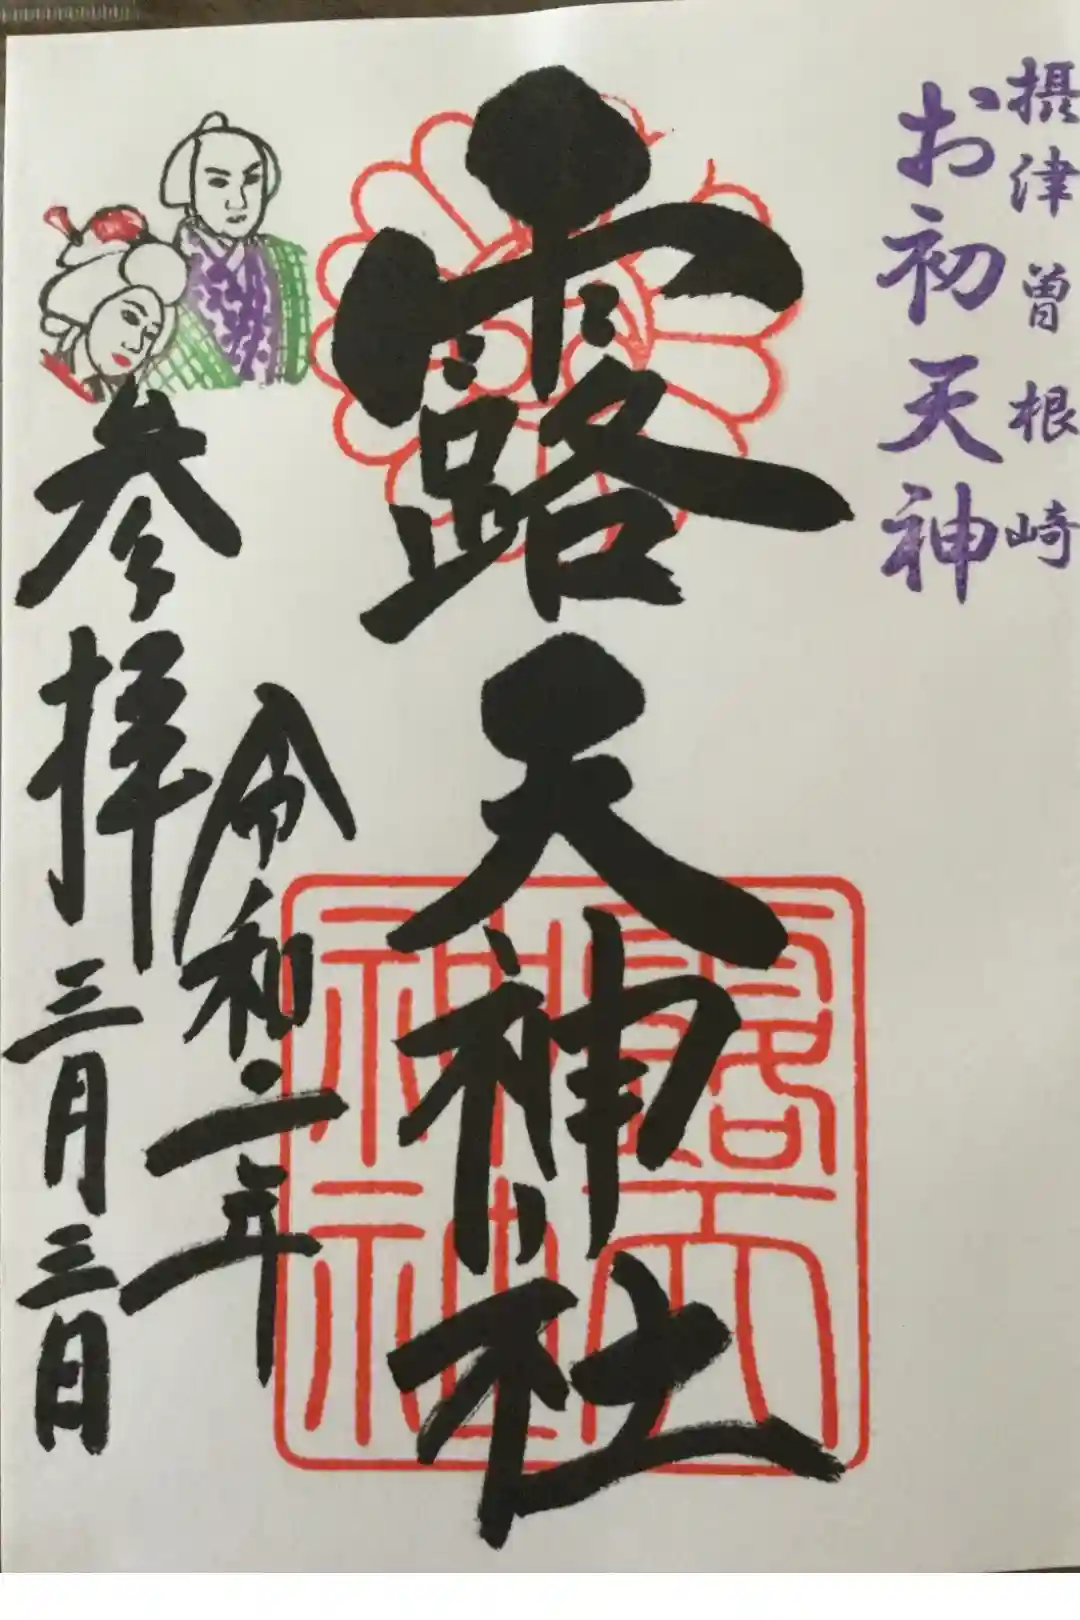 摂津曽根崎
お初天神
露天神社
令和二年
参拝三月三日
露天
神社